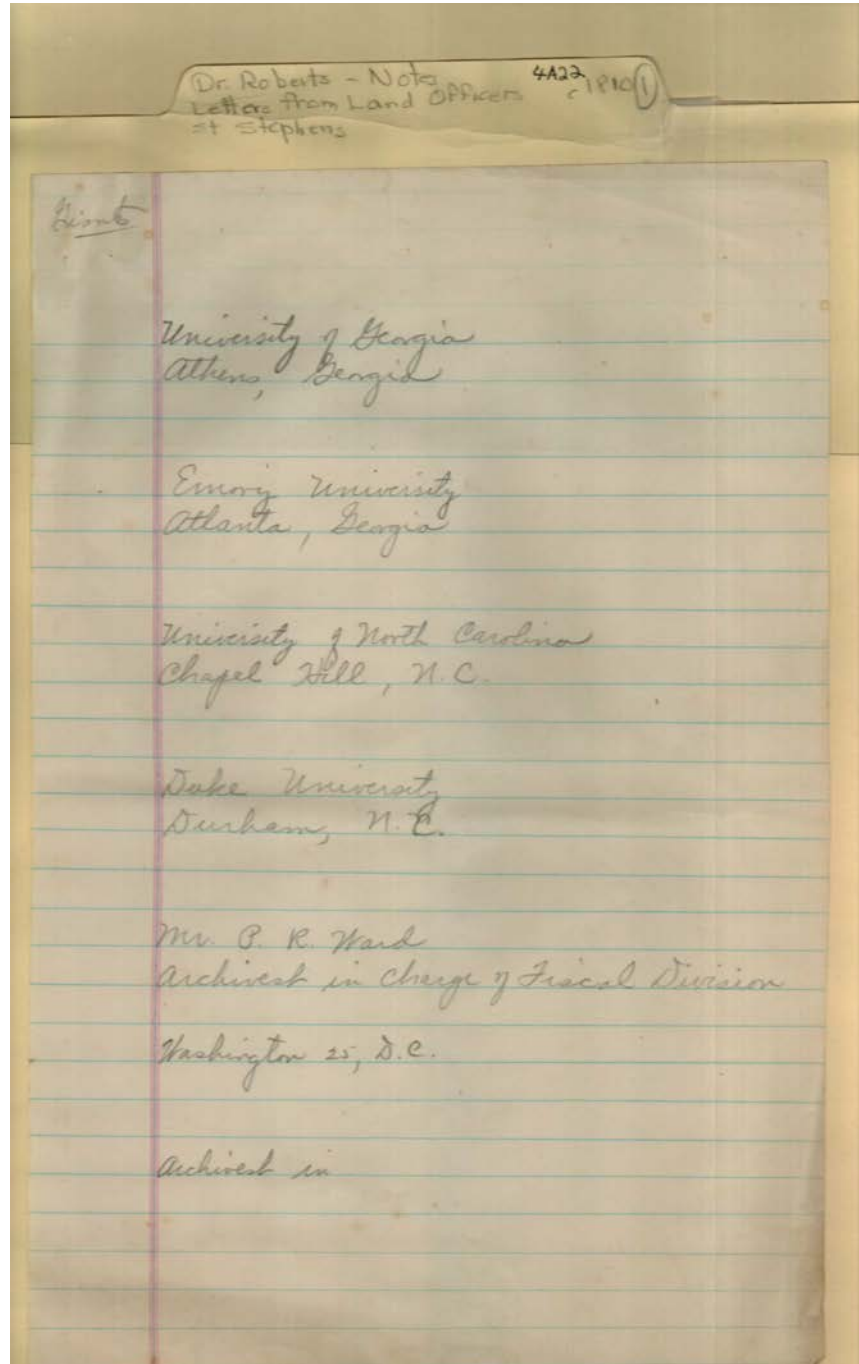 Dr. Roberts - Notes 4A22
Letters from Land Officers c 1810 1
St Stephens
University of Georgia
Athens, Georgia
Emory University
Atlanta, Georgia
University of North Carolina
Chapel Hill, N.C.
Duke University
Durham, N.C.
Mr. P. R. Ward
Archivest in Charge of Fiscal Division
Washington 25, D.C.
Archivest in